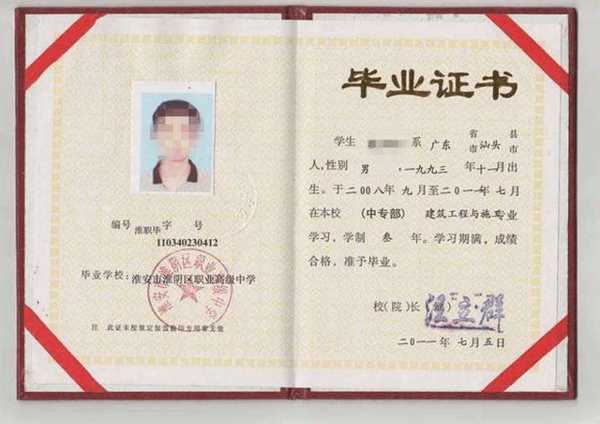 编号 淮职毕字 号
110340230412
毕业学校:淮安市淮阴区职业高级中学
淮安市淮阴区职业高级中学
毕业证书
学生 系 广东 省 市 汕头 县 市
人,性别 男 ,一九九三 年 十一月出
生。于二00八年 九月至二0一一年 七月
在本校 (中专部) 建筑工程与施工专业
学习,学制 叁 年。学习期满,成绩
合格,准予毕业。
校(院)长
二0一一年 七月五日